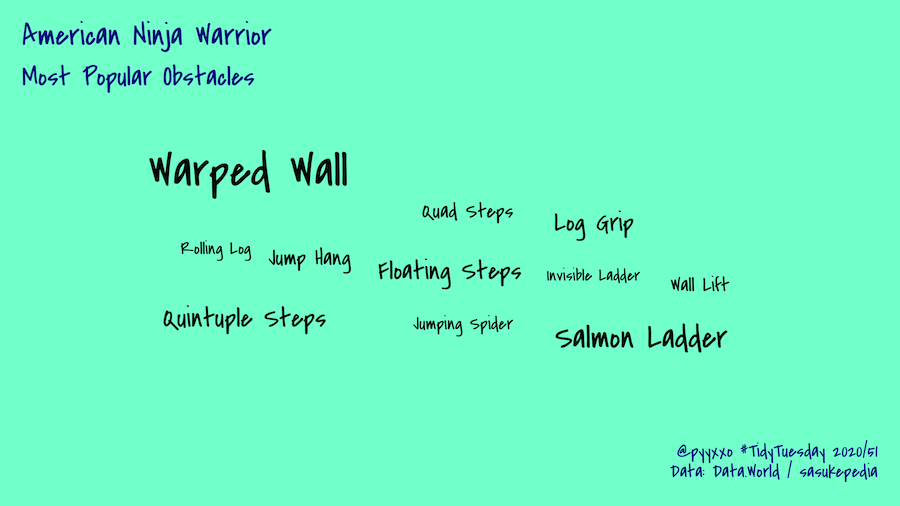 American Ninja Warrior
Most Popular Obstacles
Warped Wall
Quad Steps
Log Grip
Rolling Log
Jump Hang
Floating Steps
Invisible Ladder
Wall Lift
Quintuple Steps
Jumping Spider
Salmon Ladder
@pyyxxo #TidyTuesday 2020/51
Data: Data.World / sasukepedia